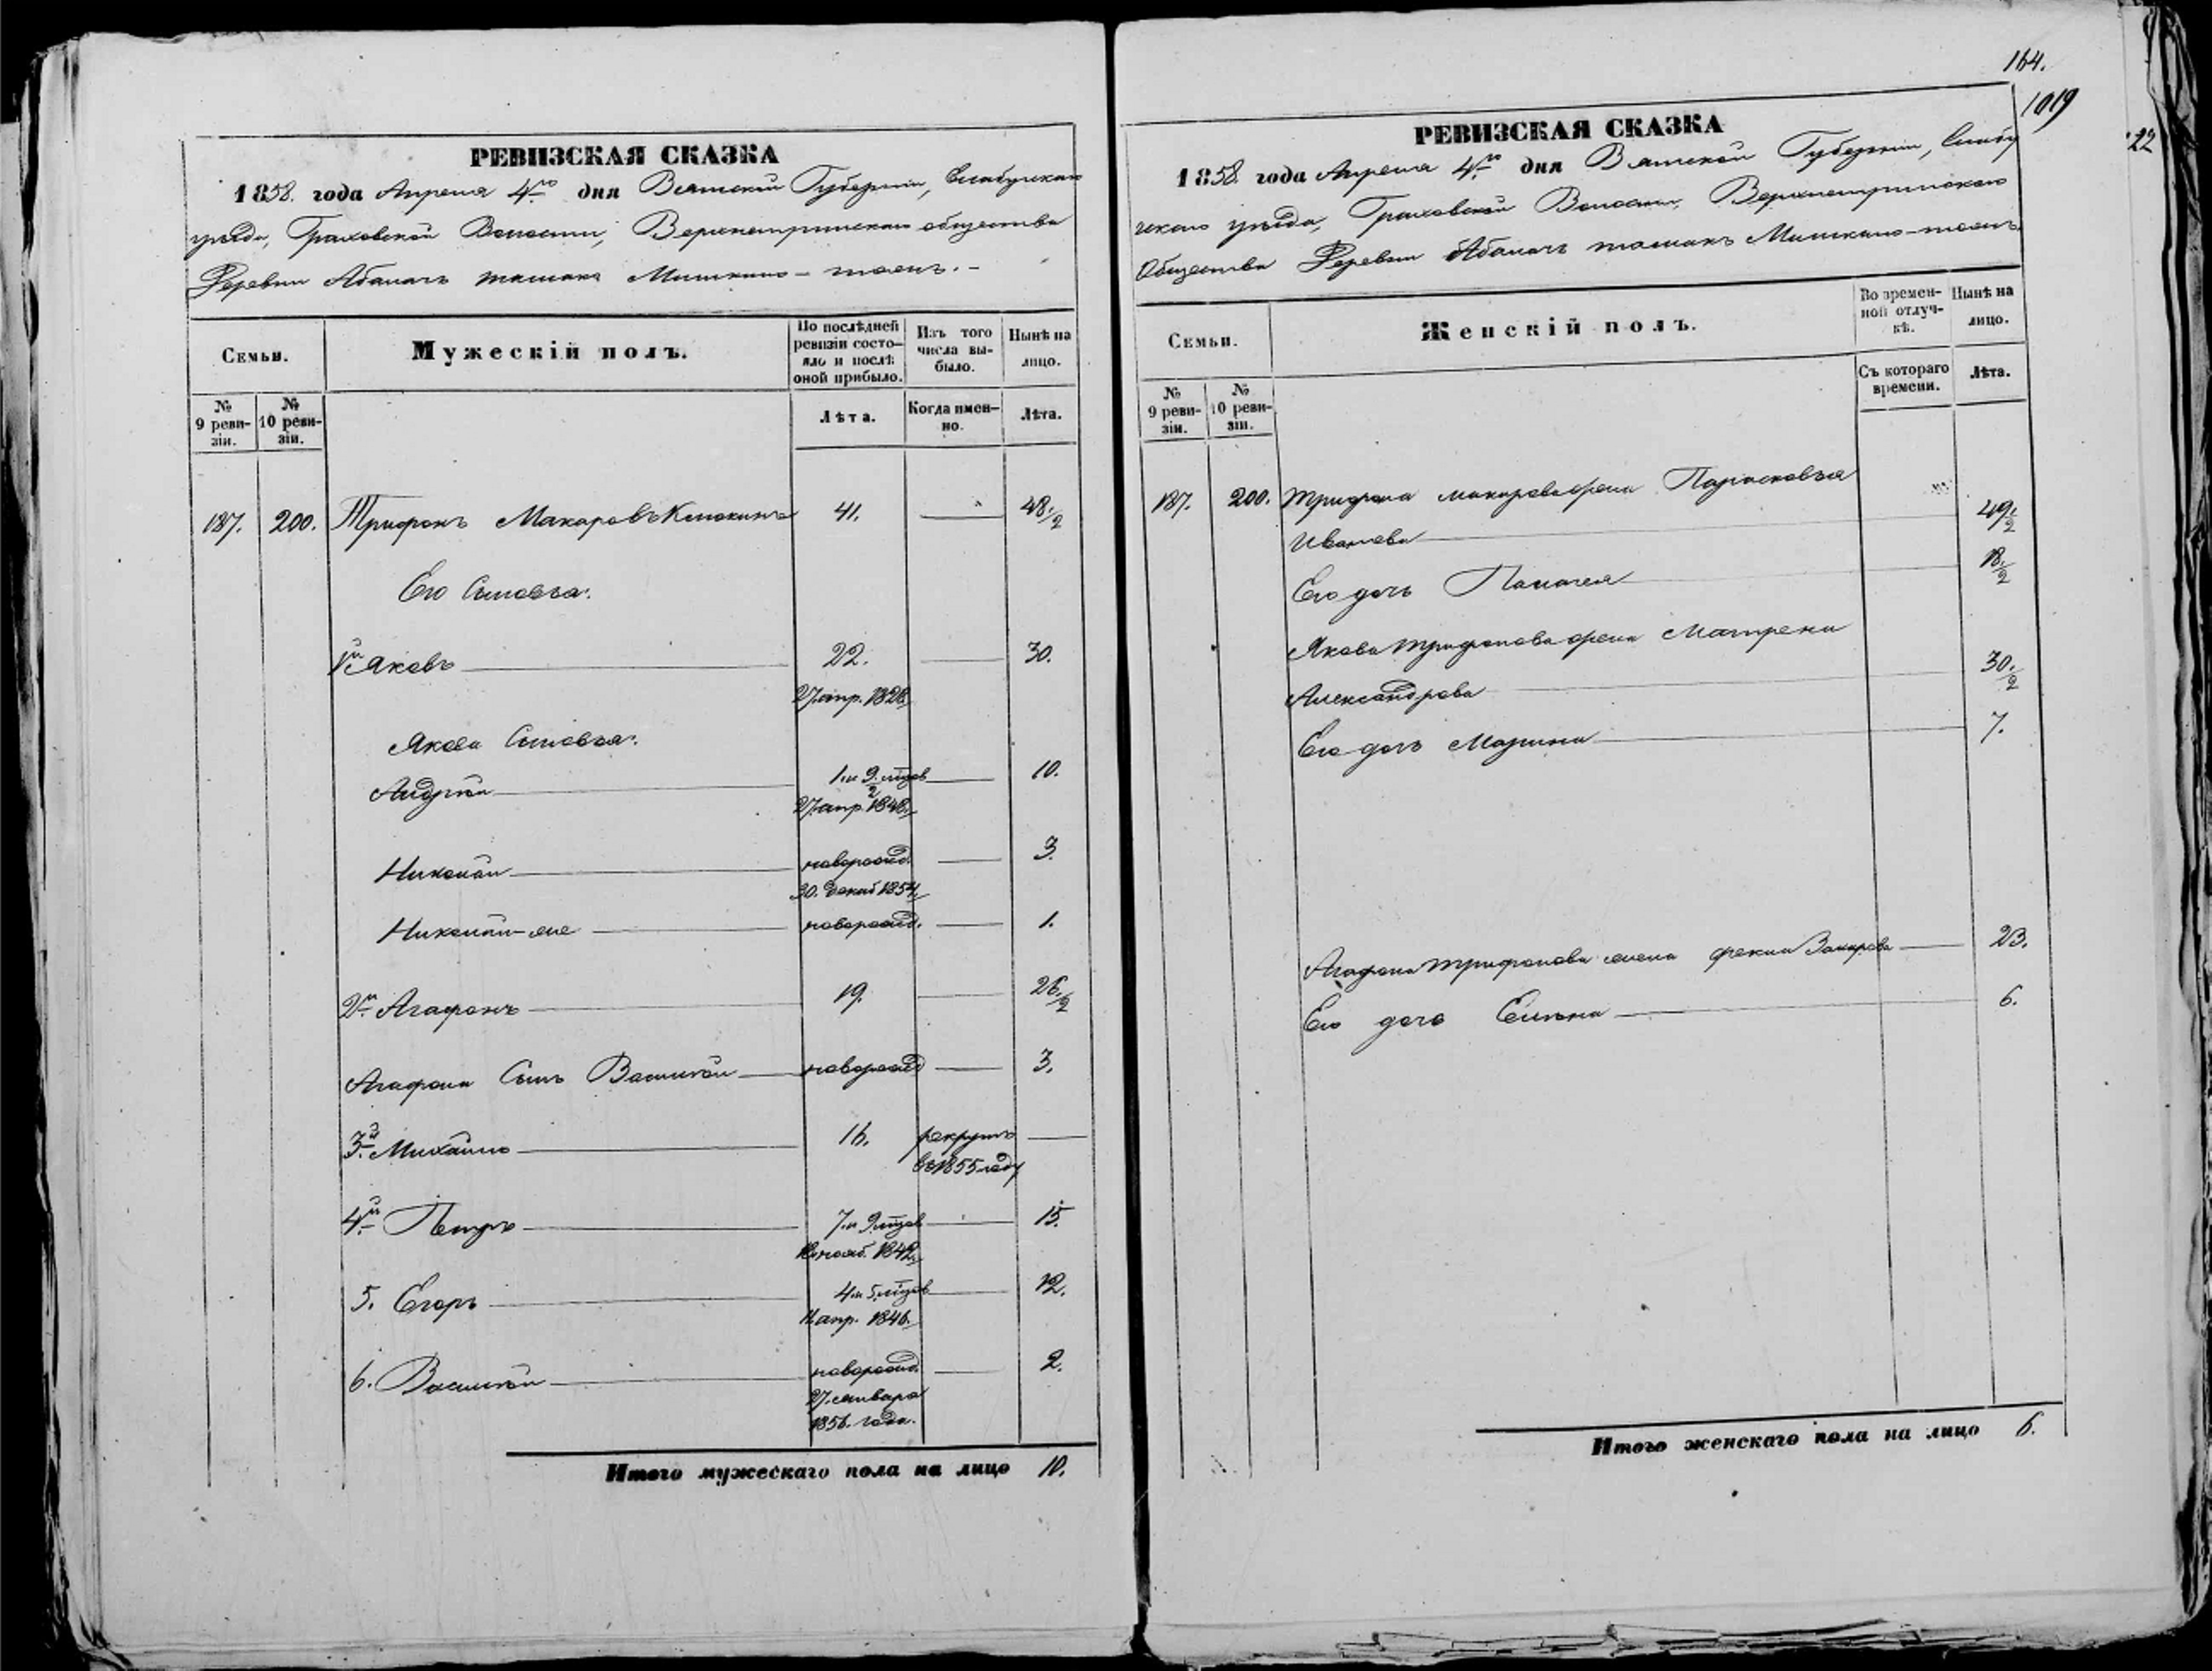 РЕВИЗСКАЯ СКАЗКА
1858. года Апреля 4го дня Вятской Губерніи, Елабужскаго
уѣзда, Граховской Волости, общества
Деревни Мишкино
Семьи. Мужескій полъ. По послѣдней ревизіи состояло и послѣ оной прибыло. Изъ того числа выбыло. Нынѣ на лицо.
№ 9 ревизіи. № 10 ревизіи. Лѣта. Когда именно. Лѣта.
187. 200. Трифонъ Макаровъ 41. 48 1/2
Его Сыновья:
1й Яковъ 22. 30.
27 апр. 1828
Якова Сыновья:
Андрей 1 и 9 1/2 мѣсяцов 10.
27 апр. 1848
Николай новорожд. 3.
30. Декаб 1854
Николай-же новорожд. 1.
2й Агафонъ 19. 26 1/2
Агафона Сынъ Василей новорожд 3.
3й Михайло 16. рекрутъ
въ 1855 году
4й Петръ 7 и 9 мѣсяцов 15.
нояб. 1842
5. Егоръ 4 и 5 мѣсяцов 12.
11 апр. 1846.
6. Василей новорожд. 2.
27. января
1856. года.
Итого мужескаго пола на лицо 10.
164.
1019
22
РЕВИЗСКАЯ СКАЗКА
1858. года Апреля 4го дня Вятской Губерніи, Елабу
жскаго уѣзда, Граховской Волости,
Общества Деревни Мишкино
Семьи. Женскій полъ. Во временной отлучкѣ. Нынѣ на лицо.
№ 9 ревизіи. № 10 ревизіи. Съ котораго времени. Лѣта.
187. 200. Трифона Макарова жена Парасковья
Иванова 49 1/2
Его дочь Палагея 18 1/2
Якова Трифонова жена Матрена
Александрова 30 1/2
Его дочь Марина 7.
Агафона Трифонова жена Фекла Захарова 23.
Его дочь Елѣна 6.
Итого женскаго пола на лицо 6.